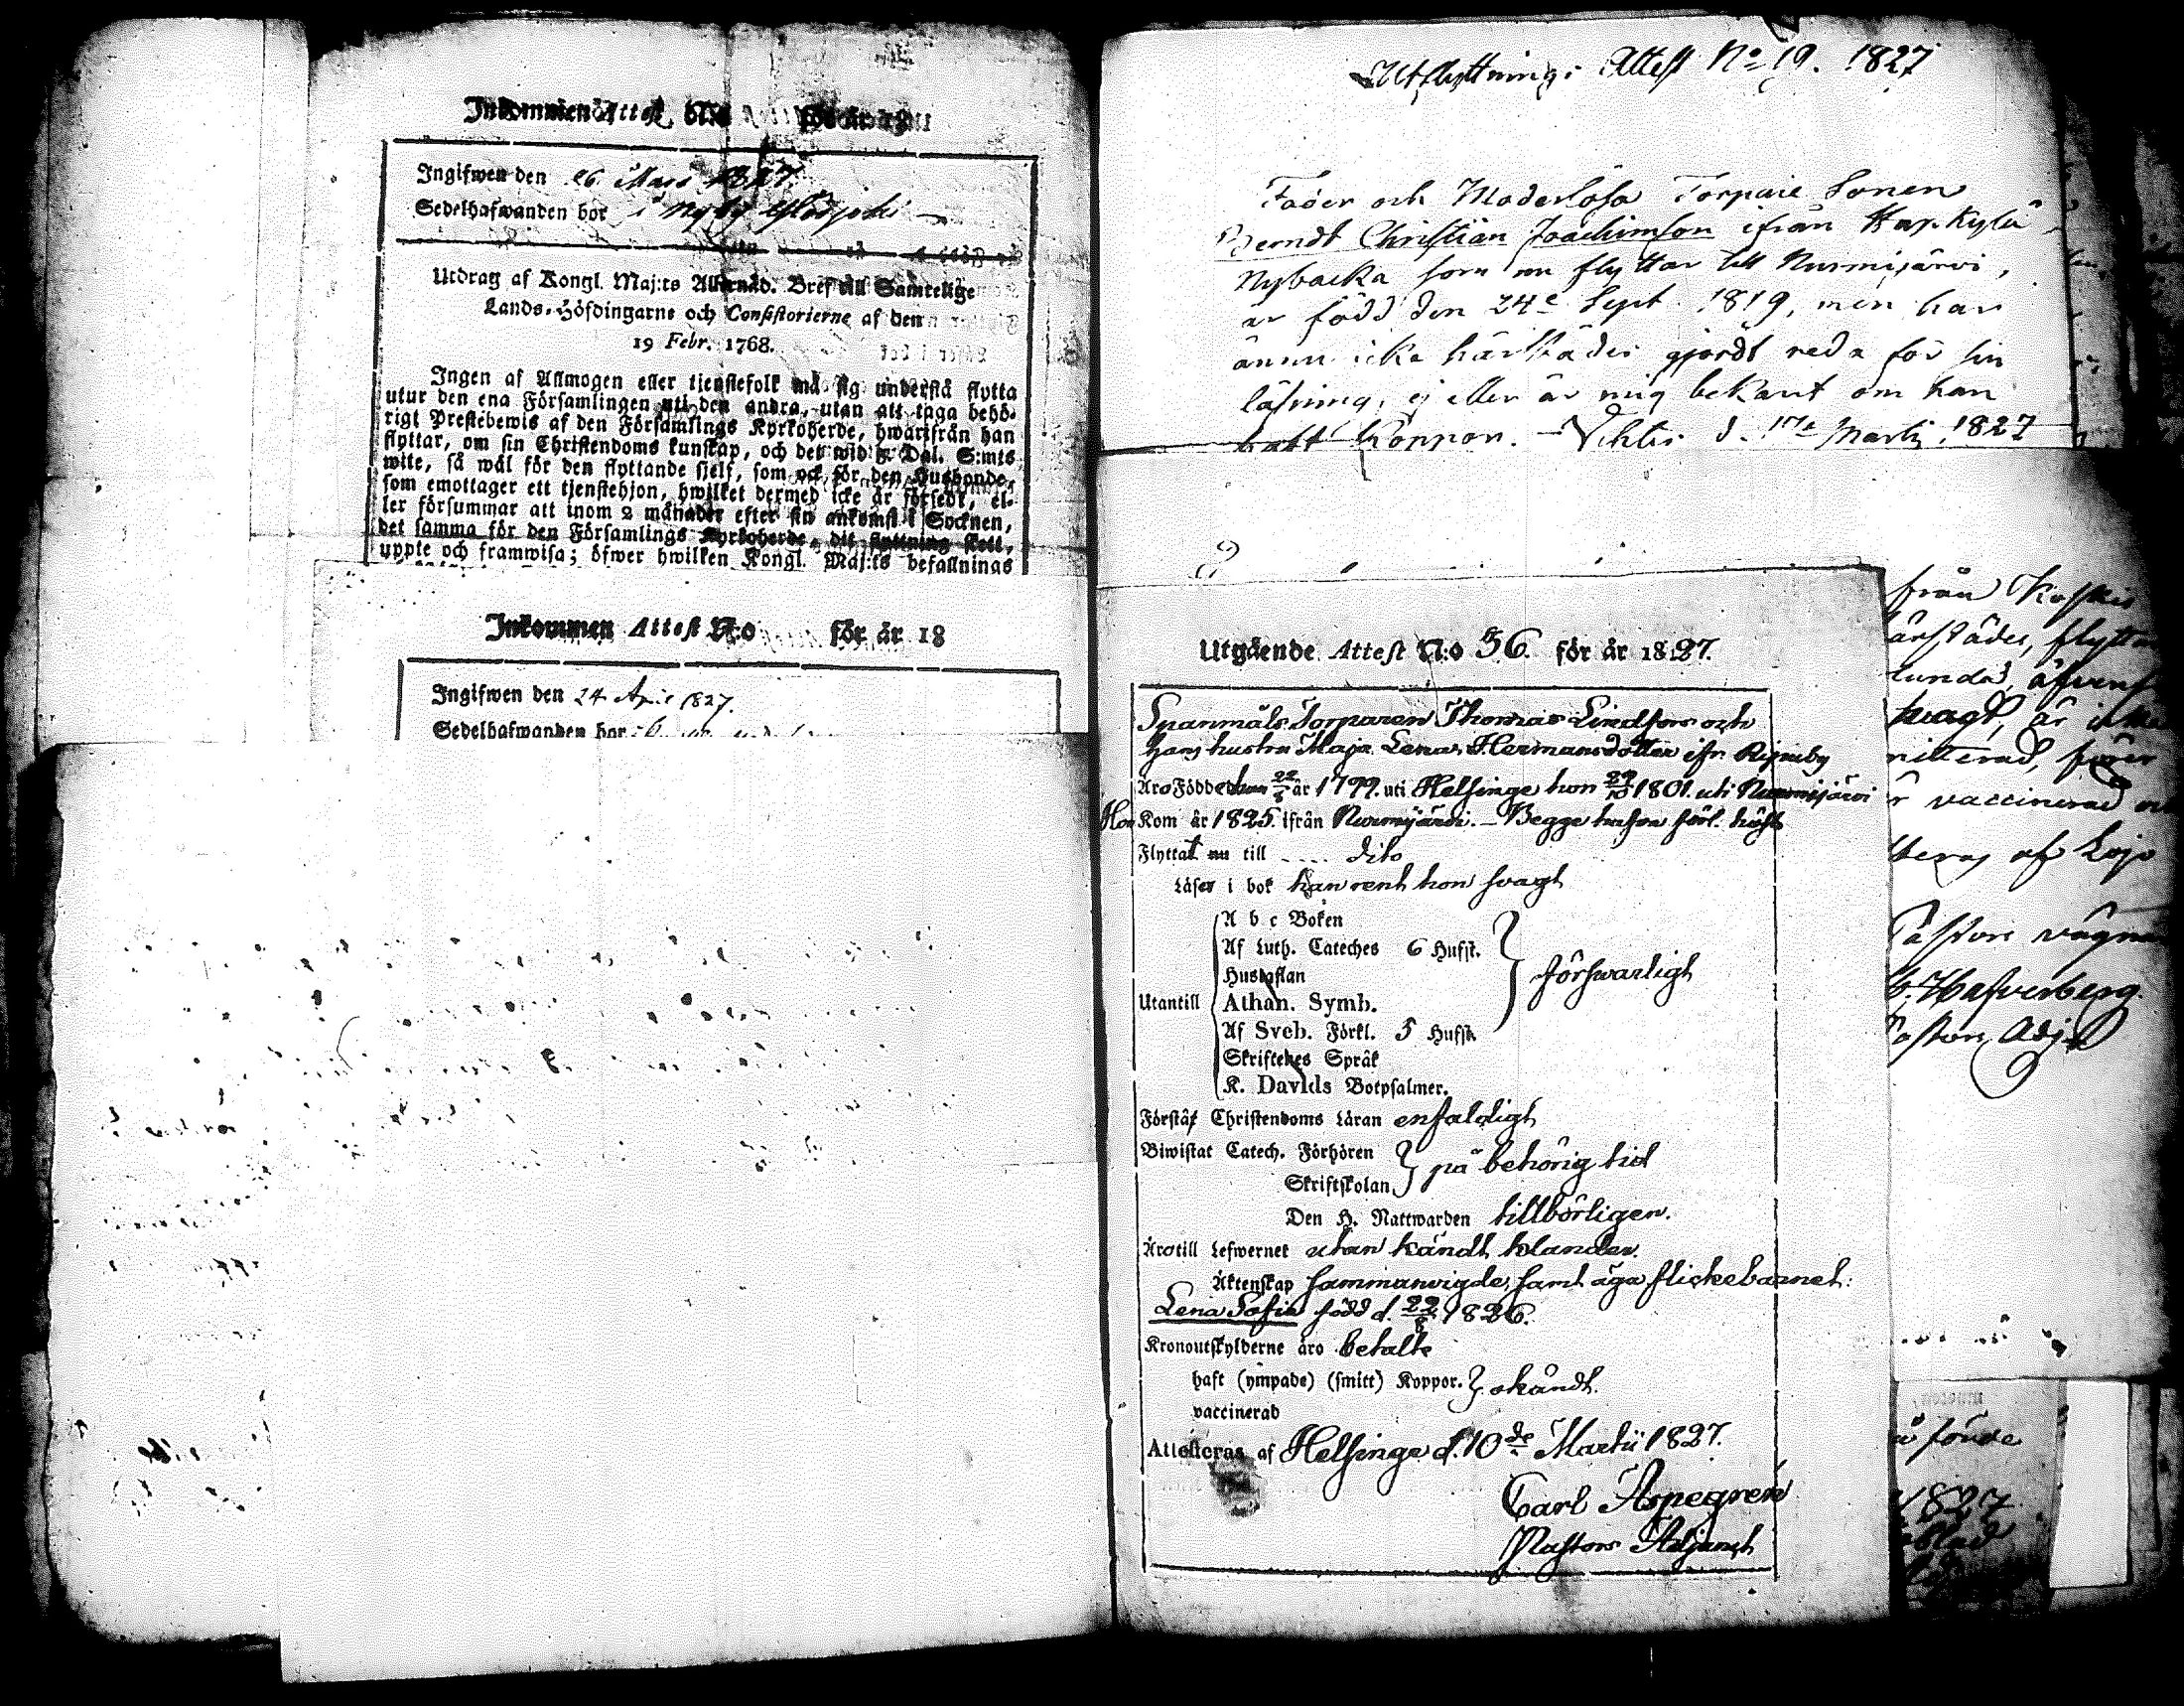 Inkommen Attest N:o för år 18
Ingifwen den 26 Mars 1827.
Sedelhafwanden bor i Nyby
Utdrag af Kongl. Maj:ts Allernåd. Bref till Samtelige
Lands-Höfdingarne och Consistorierne af den
19 Febr. 1768.
Ingen af Allmogen eller tjenstefolk må sig understå flytta
utur den ena Församlingen uti den andra, utan att taga behö-
rigt Prestebewis af den Församlings Kyrkoherde, hwarifrån han
flyttar, om sin Christendoms kunskap, och det wid Dal. S:mts
wite, så wäl för den flyttande sjelf, som ock för den Husbonde,
som emottager ett tjenstehjon, hwilket dermed icke är försedt, el-
ler försummar att inom 2 månader efter sin ankomst i Socknen,
det samma för den Församlings Kyrkoherde, dit flyttning skett,
uppte och framwisa; öfwer hwilken Kongl. Maj:ts befallnings
Inkommen Attest N:o för år 18
Ingifwen den 24 April 1827.
Sedelhafwanden bor i
Utflyttnings Attest No 19. 1827
Fader och Moderlösa Torpare Sonen
Berndt Christian Joachimson ifrån Haapkylä
Nybacka som nu flyttar till Nurmijärvi,
är född den 24e Sept. 1819, men har
ännu icke härstädes gjordt reda för sin
läsning, ej eller är mig bekant om han
haft Koppor. – Vichtis d. 17e Martij 1827
Utgående Attest N:o 56. för år 1827.
Spanmåls Torparen Thomas Lindfors och
hans hustru Maja Lena Hermansdotter ifr.
Äro Födde han 22/8 år 1799. uti Helsinge hon 29/10 1801. uti Nurmijärvi
Hon Kom år 1825. ifrån Nurmijärvi. – Begge förl. höst
Flyttat till .... dito
Läser i bok han rent hon svagt
A b c Boken
Af Luth. Cateches 6 Hufst.
Hustaflan
försvarligt
Utantill Athan. Symb.
Af Sveb. Förkl. 5 Hufst.
Skriftenes Språk
K. Davids Botpsalmer.
Förstår Christendoms Läran enfaldigt
Biwistat Catech. Förhören
på behörig tid
Skriftskolan
Den H. Nattwarden tillbörligen.
Äro till Lefwernet utan kändt klander.
Äktenskap sammanvigde, samt äga flickebarnet:
Lena Sofia född d. 22/8 1826.
Kronoutskylderne äro betalte
haft (ympade) (smitt) Koppor. okändt.
vaccinerad
Attesteras af Helsinge d. 10de Martii 1827.
Carl Aspegren
Pastors Adjunct
från
ärstädes, flyttar
svagt, är icke
r vaccinerad
teras af Lojo
Pastors vägnar
Hafverberg.
Pastors Adj.
1827